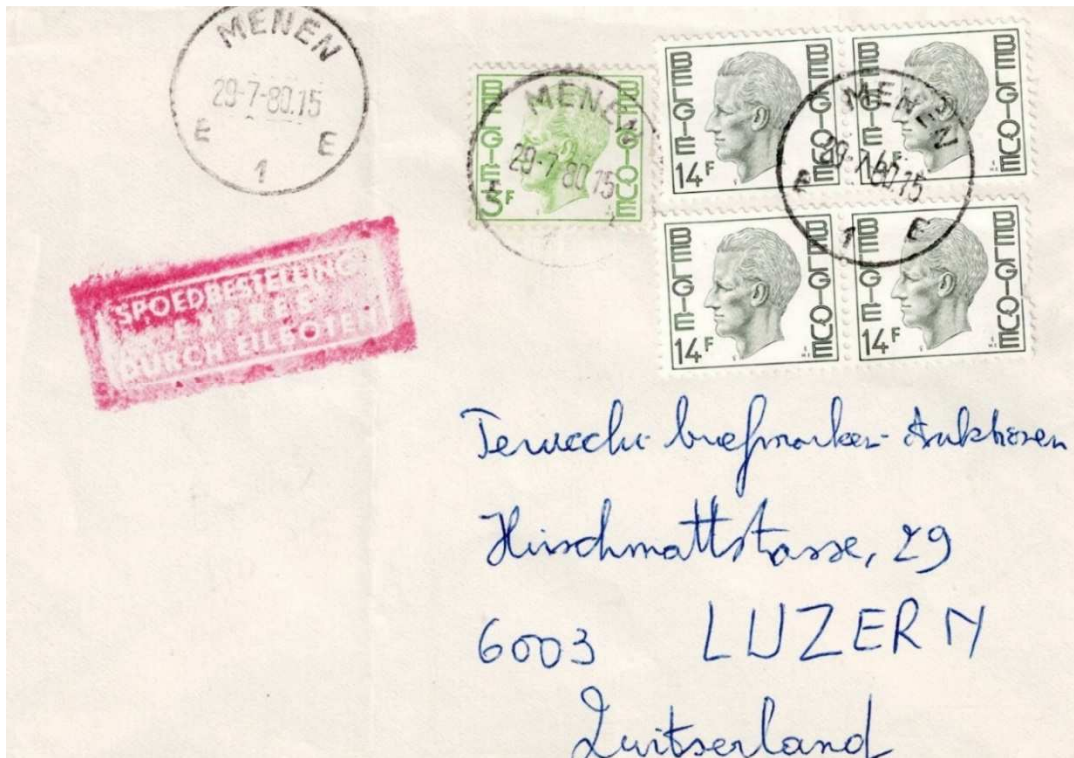 MENEN
29-7-80.15
E E
1
BELGIE BELGIQUE
3F
MENEN
29-7-80.15
1
BELGIE BELGIQUE
14F
BELGIE BELGIQUE
14F
MENEN
29-7-80.15
E E
1
BELGIE BELGIQUE
14F
BELGIE BELGIQUE
14F
SPOEDBESTELLING
EXPRES
DURCH EILBOTEN
briefmarken-Auktionen
Hirschmattstasse, 29
6003 LUZERN
Zwitserland